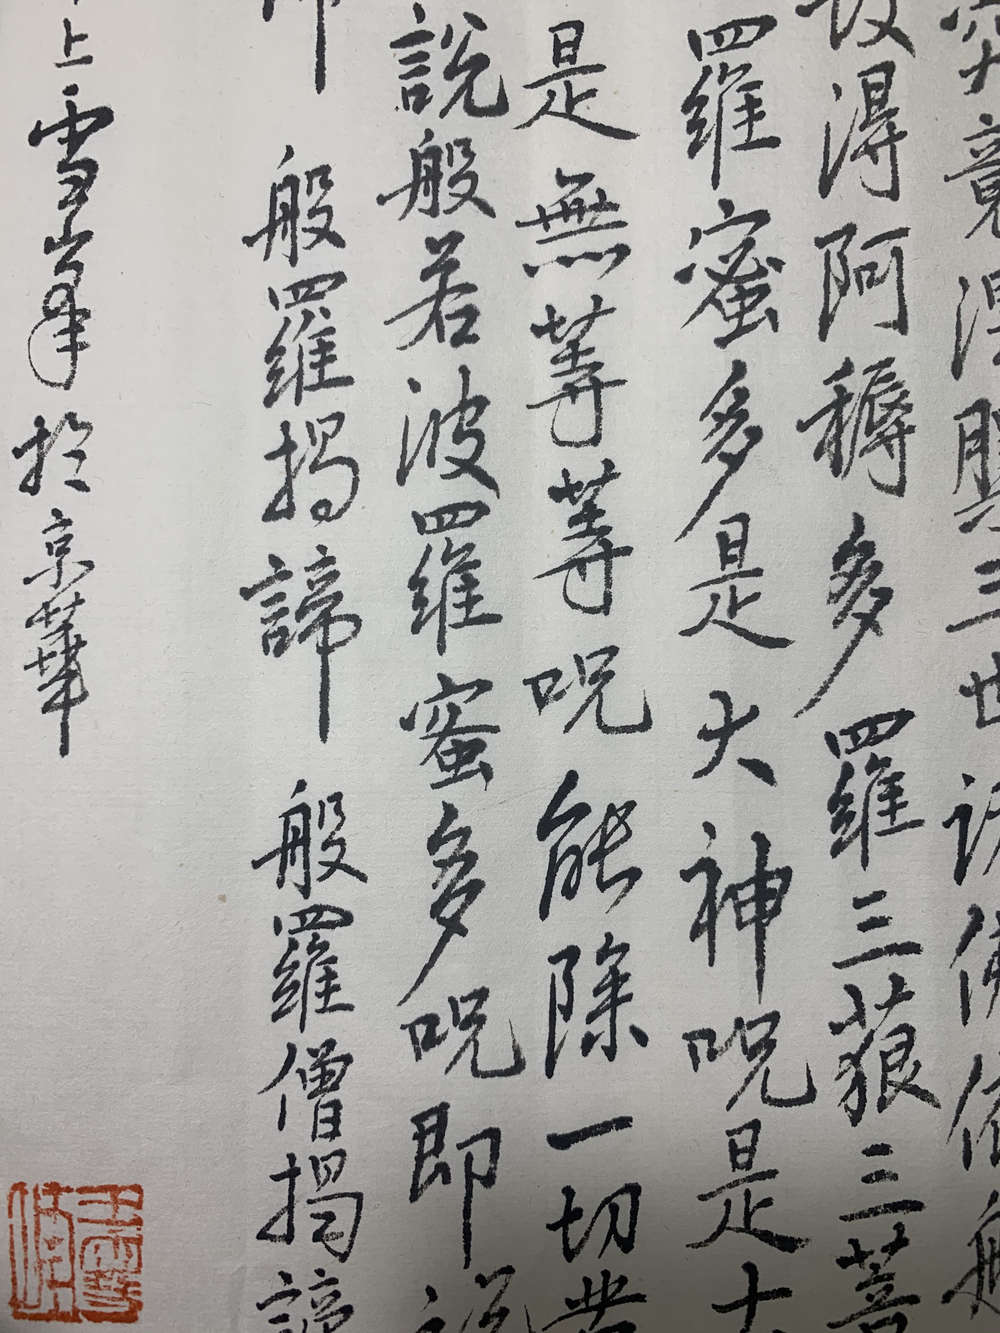 竟涅槃三世諸佛依般
故得阿耨多羅三藐三菩
羅蜜多是大神咒是大
是無等等咒能除一切苦
說般若波羅蜜多咒即說
諦 般羅揭諦 般羅僧揭諦
上雪峯於京華